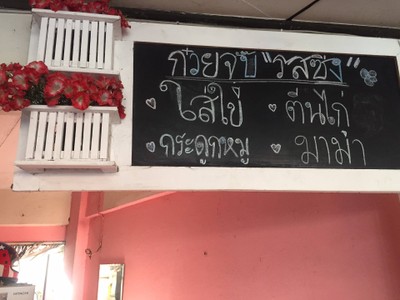 ก๋วยจั๊บ "รสซิ่ง"
ใส่ไข่ ตีนไก่
กระดูกหมู มาม่า